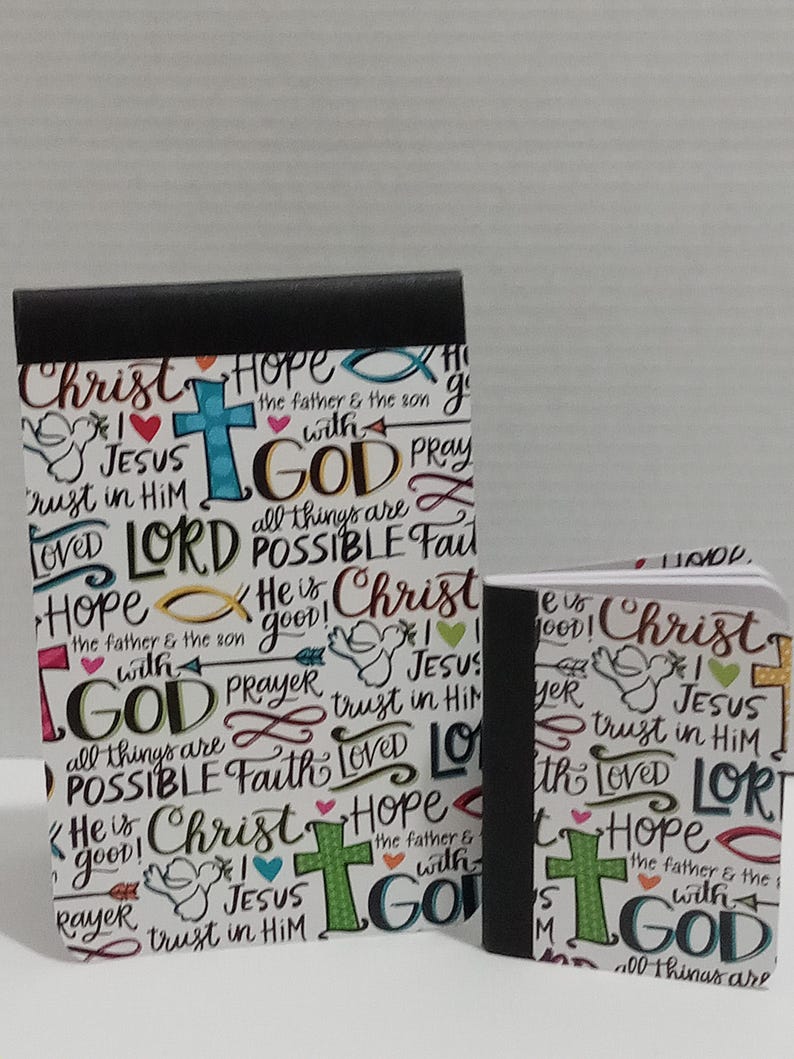 Christ HOPE
the father & the son
I JESUS with
GOD PRAY
trust in HiM
LOVED LORD all things are
POSSIBLE
HOPE He is Christ
good!
the father & the son I
with JESUS
GOD PRAYER trust in HiM
all things are
POSSIBLE Faith LOVED LO
He is Christ HOPE
good! the father &
I with
JESUS GOD
RAYER trust in HiM
HOPE
Christ
I
JESUS
trust in HiM
LOVED LOR
HOPE
the father & the
with
GOD
all things are